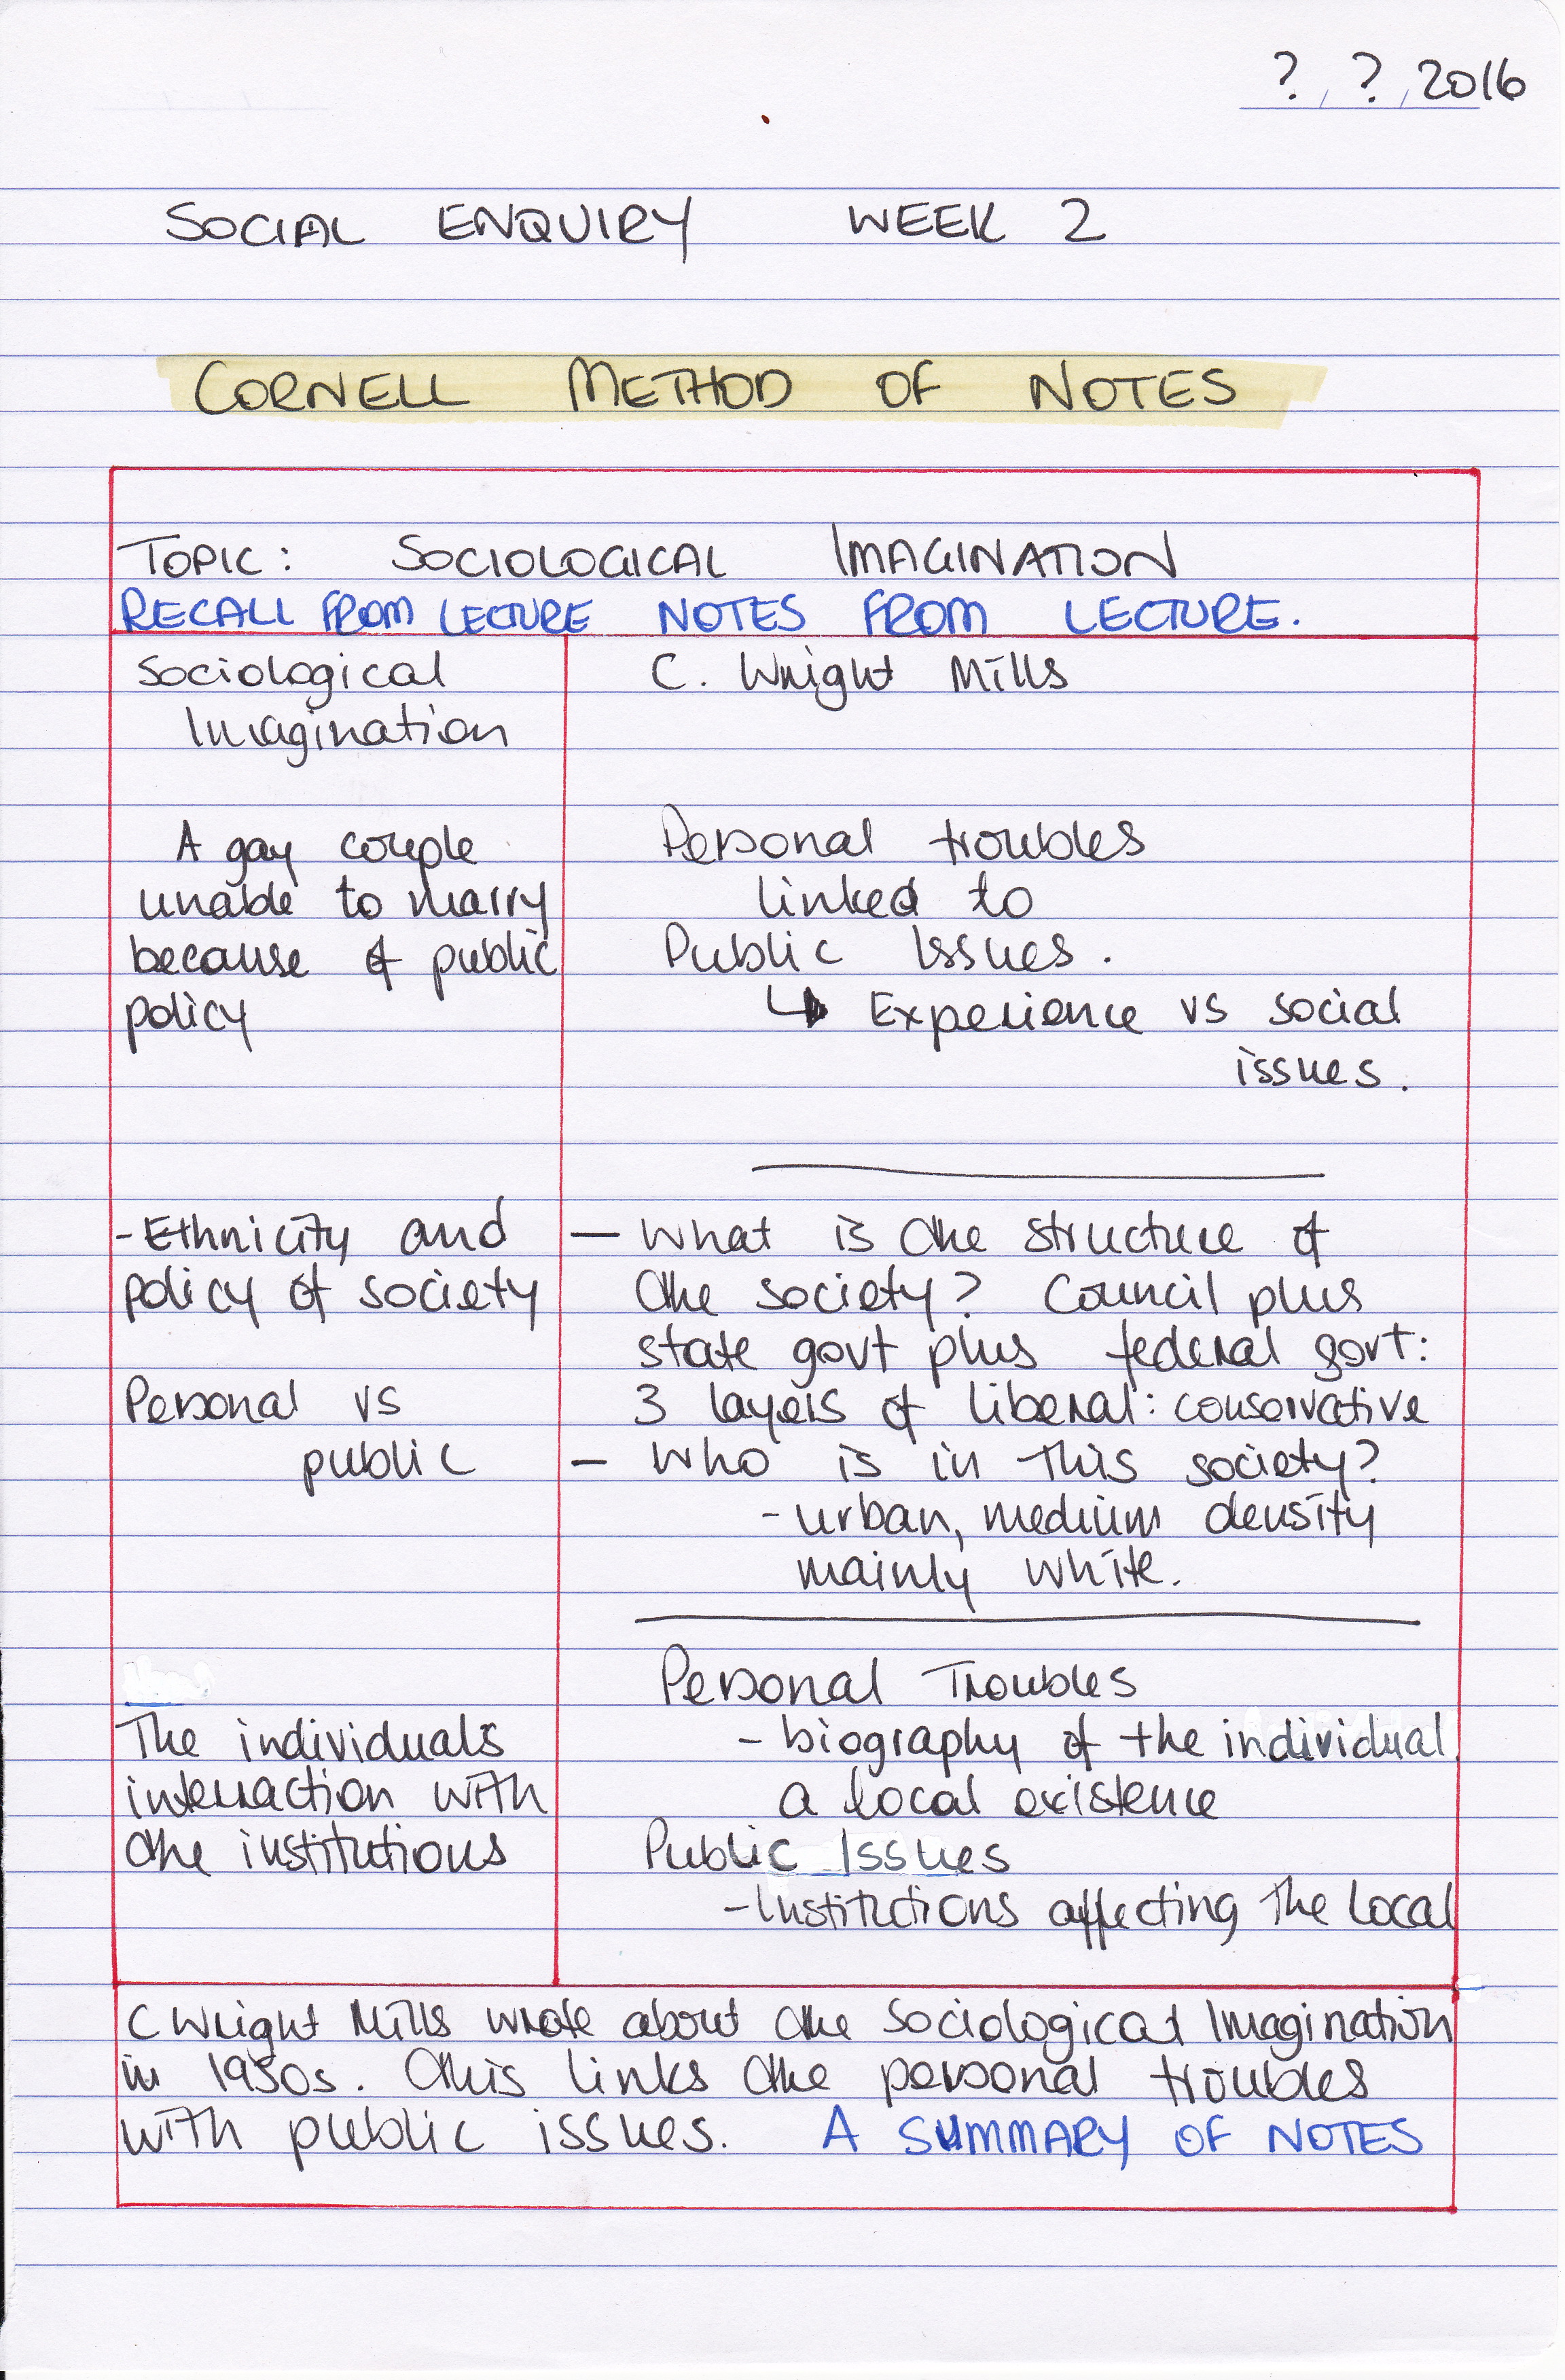 ? / ? / 2016
SOCIAL ENQUIRY WEEK 2
CORNELL METHOD OF NOTES
TOPIC: SOCIOLOGICAL IMAGINATION
RECALL FROM LECTURE NOTES FROM LECTURE.
Sociological
Imagination
A gay couple
unable to marry
because of public
policy
- Ethnicity and
policy of society
Personal vs
public
The individuals
interaction with
the institutions
C. Wright Mills
Personal troubles
linked to
Public Issues.
↳ Experience vs social
issues.
— What is the structure of
the society? Council plus
state govt plus federal govt:
3 layers of liberal: conservative
— Who is in this society?
- urban, medium density
mainly white.
Personal Troubles
- biography of the individual
a local existence
Public Issues
- Institutions affecting the local
C Wright Mills wrote about the Sociological Imagination
in 1950s. This links the personal troubles
with public issues. A SUMMARY OF NOTES